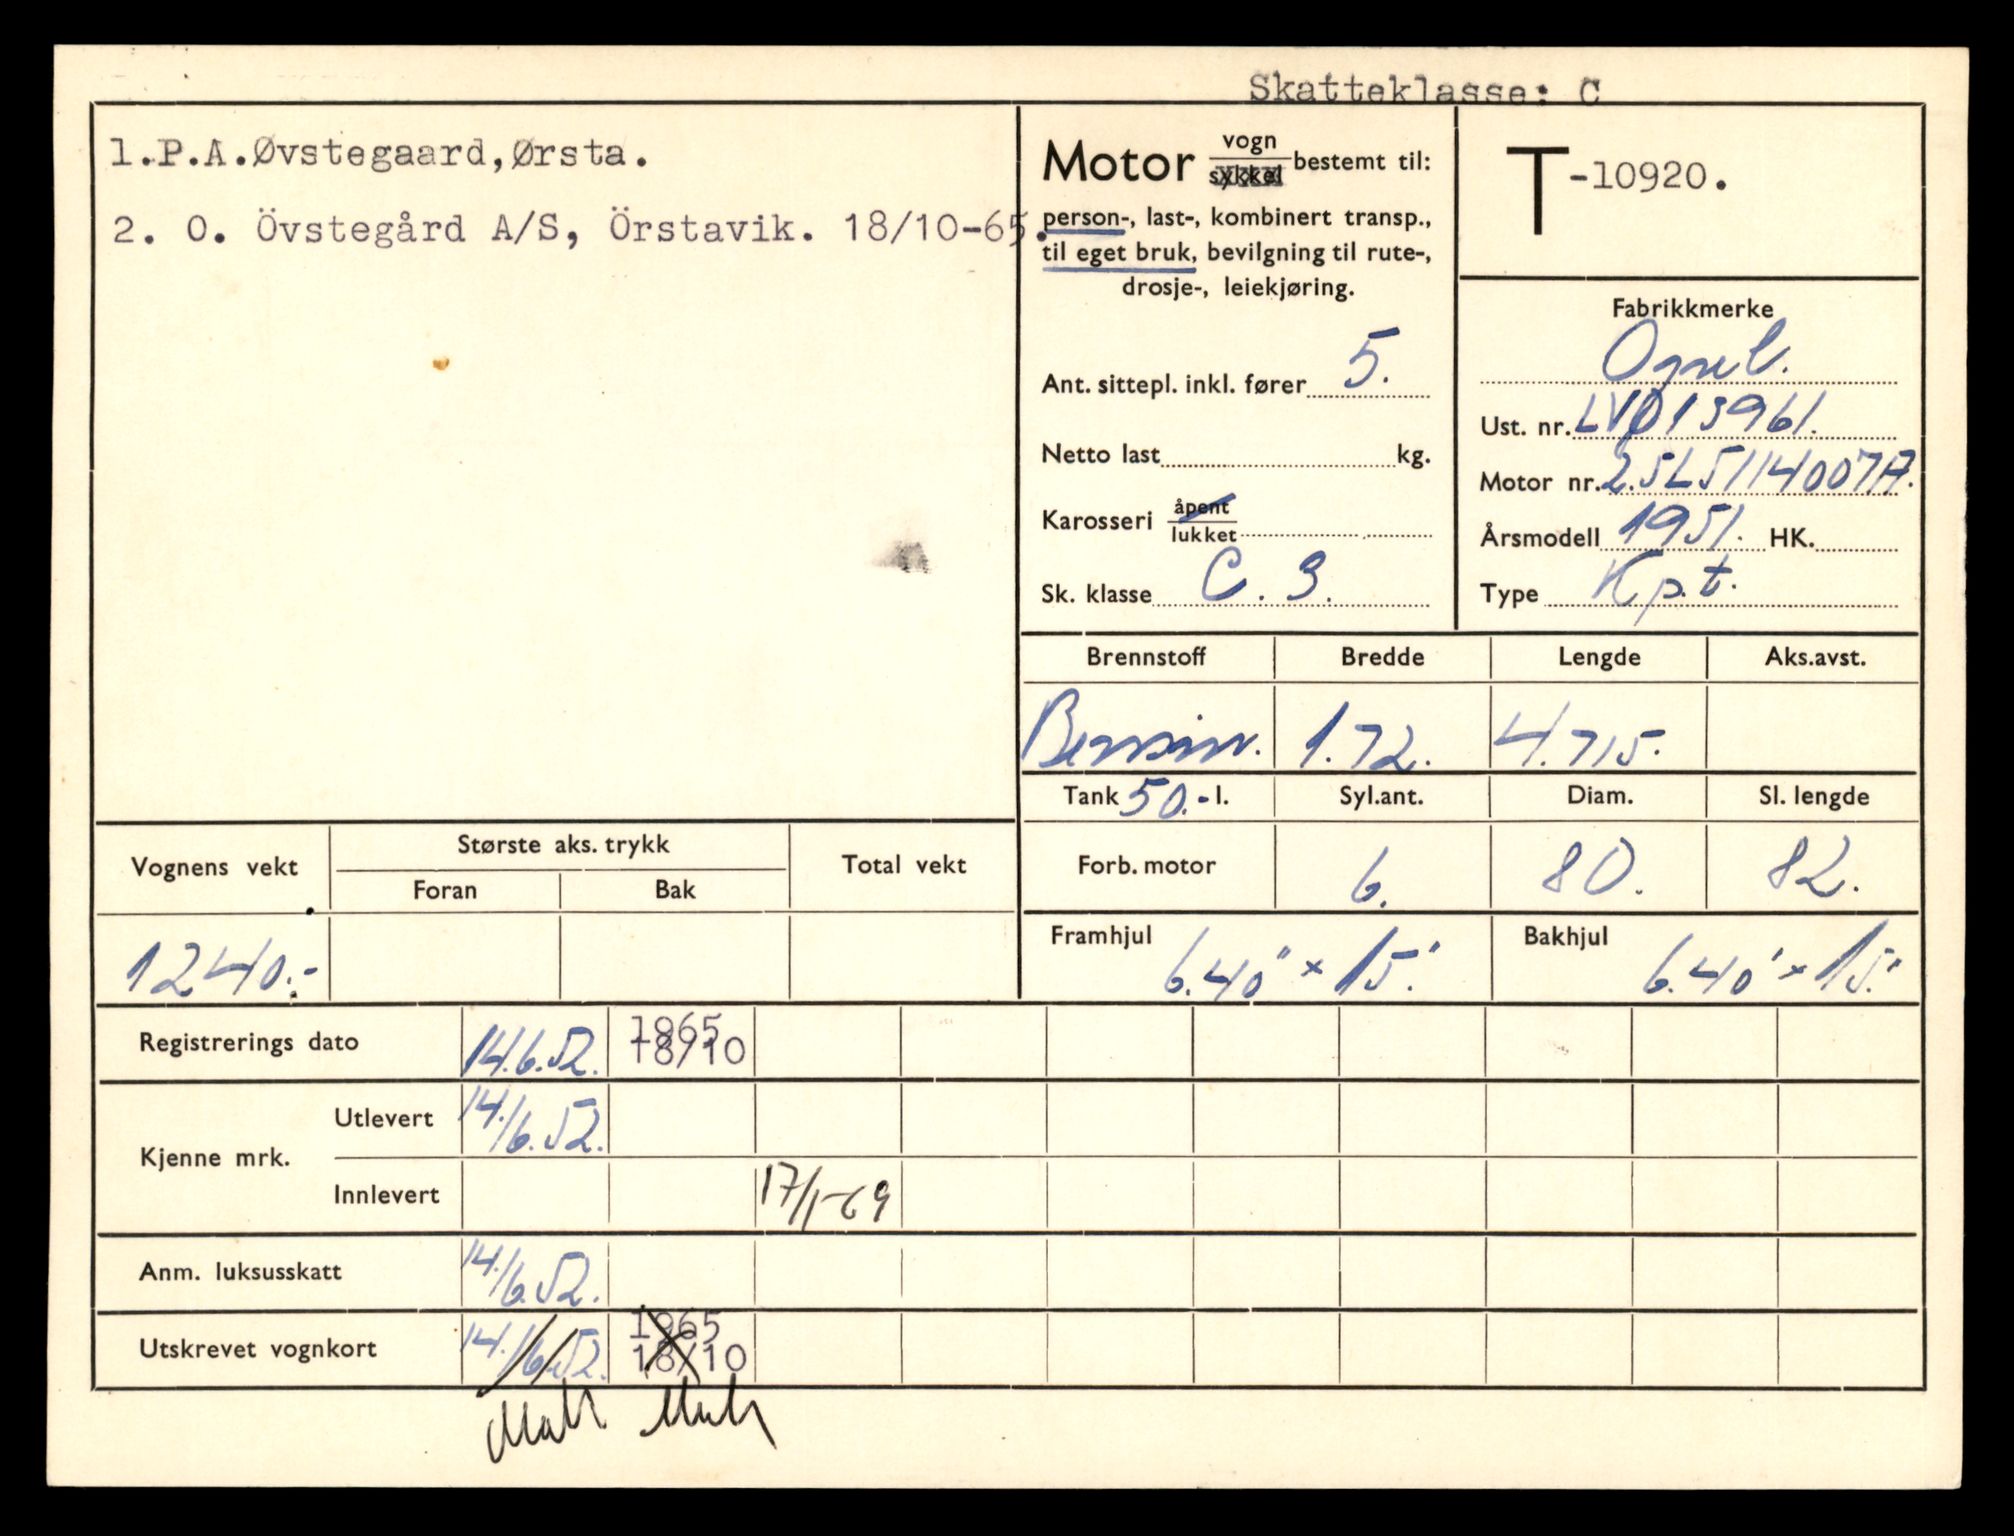 Skatteklasse: C
1.P.A.Øvstegaard,Ørsta.
2. O. Övstegård A/S, Örstavik. 18/10-65.
Motor vogn sykkel bestemt til:
person-, last-, kombinert transp.,
til eget bruk, bevilgning til rute-,
drosje-, leiekjøring.
Ant. sittepl. inkl. fører 5.
Netto last kg.
Karosseri åpent lukket
Sk. klasse C. 3.
T-10920.
Fabrikkmerke
Opel.
Ust. nr. LVØ13961.
Motor nr. 2.5L51140071A.
Årsmodell 1951. HK.
Type Kpt.
Brennstoff Bredde Lengde Aks.avst.
Bensin. 1.72. 4.715.
Tank 50.- l. Syl.ant. Diam. Sl. lengde
Forb. motor 6. 80. 82.
Framhjul 6.40" × 15." Bakhjul 6.40" × 15."
Vognens vekt Største aks. trykk Total vekt
Foran Bak
1240.-
Registrerings dato 14.6.52. 1965 18/10
Kjenne mrk. Utlevert 14./6.52.
Innlevert 17/1-69
Anm. luksusskatt 14./6.52.
Utskrevet vognkort 14./6.52. 1965 18/10
Mak Mak